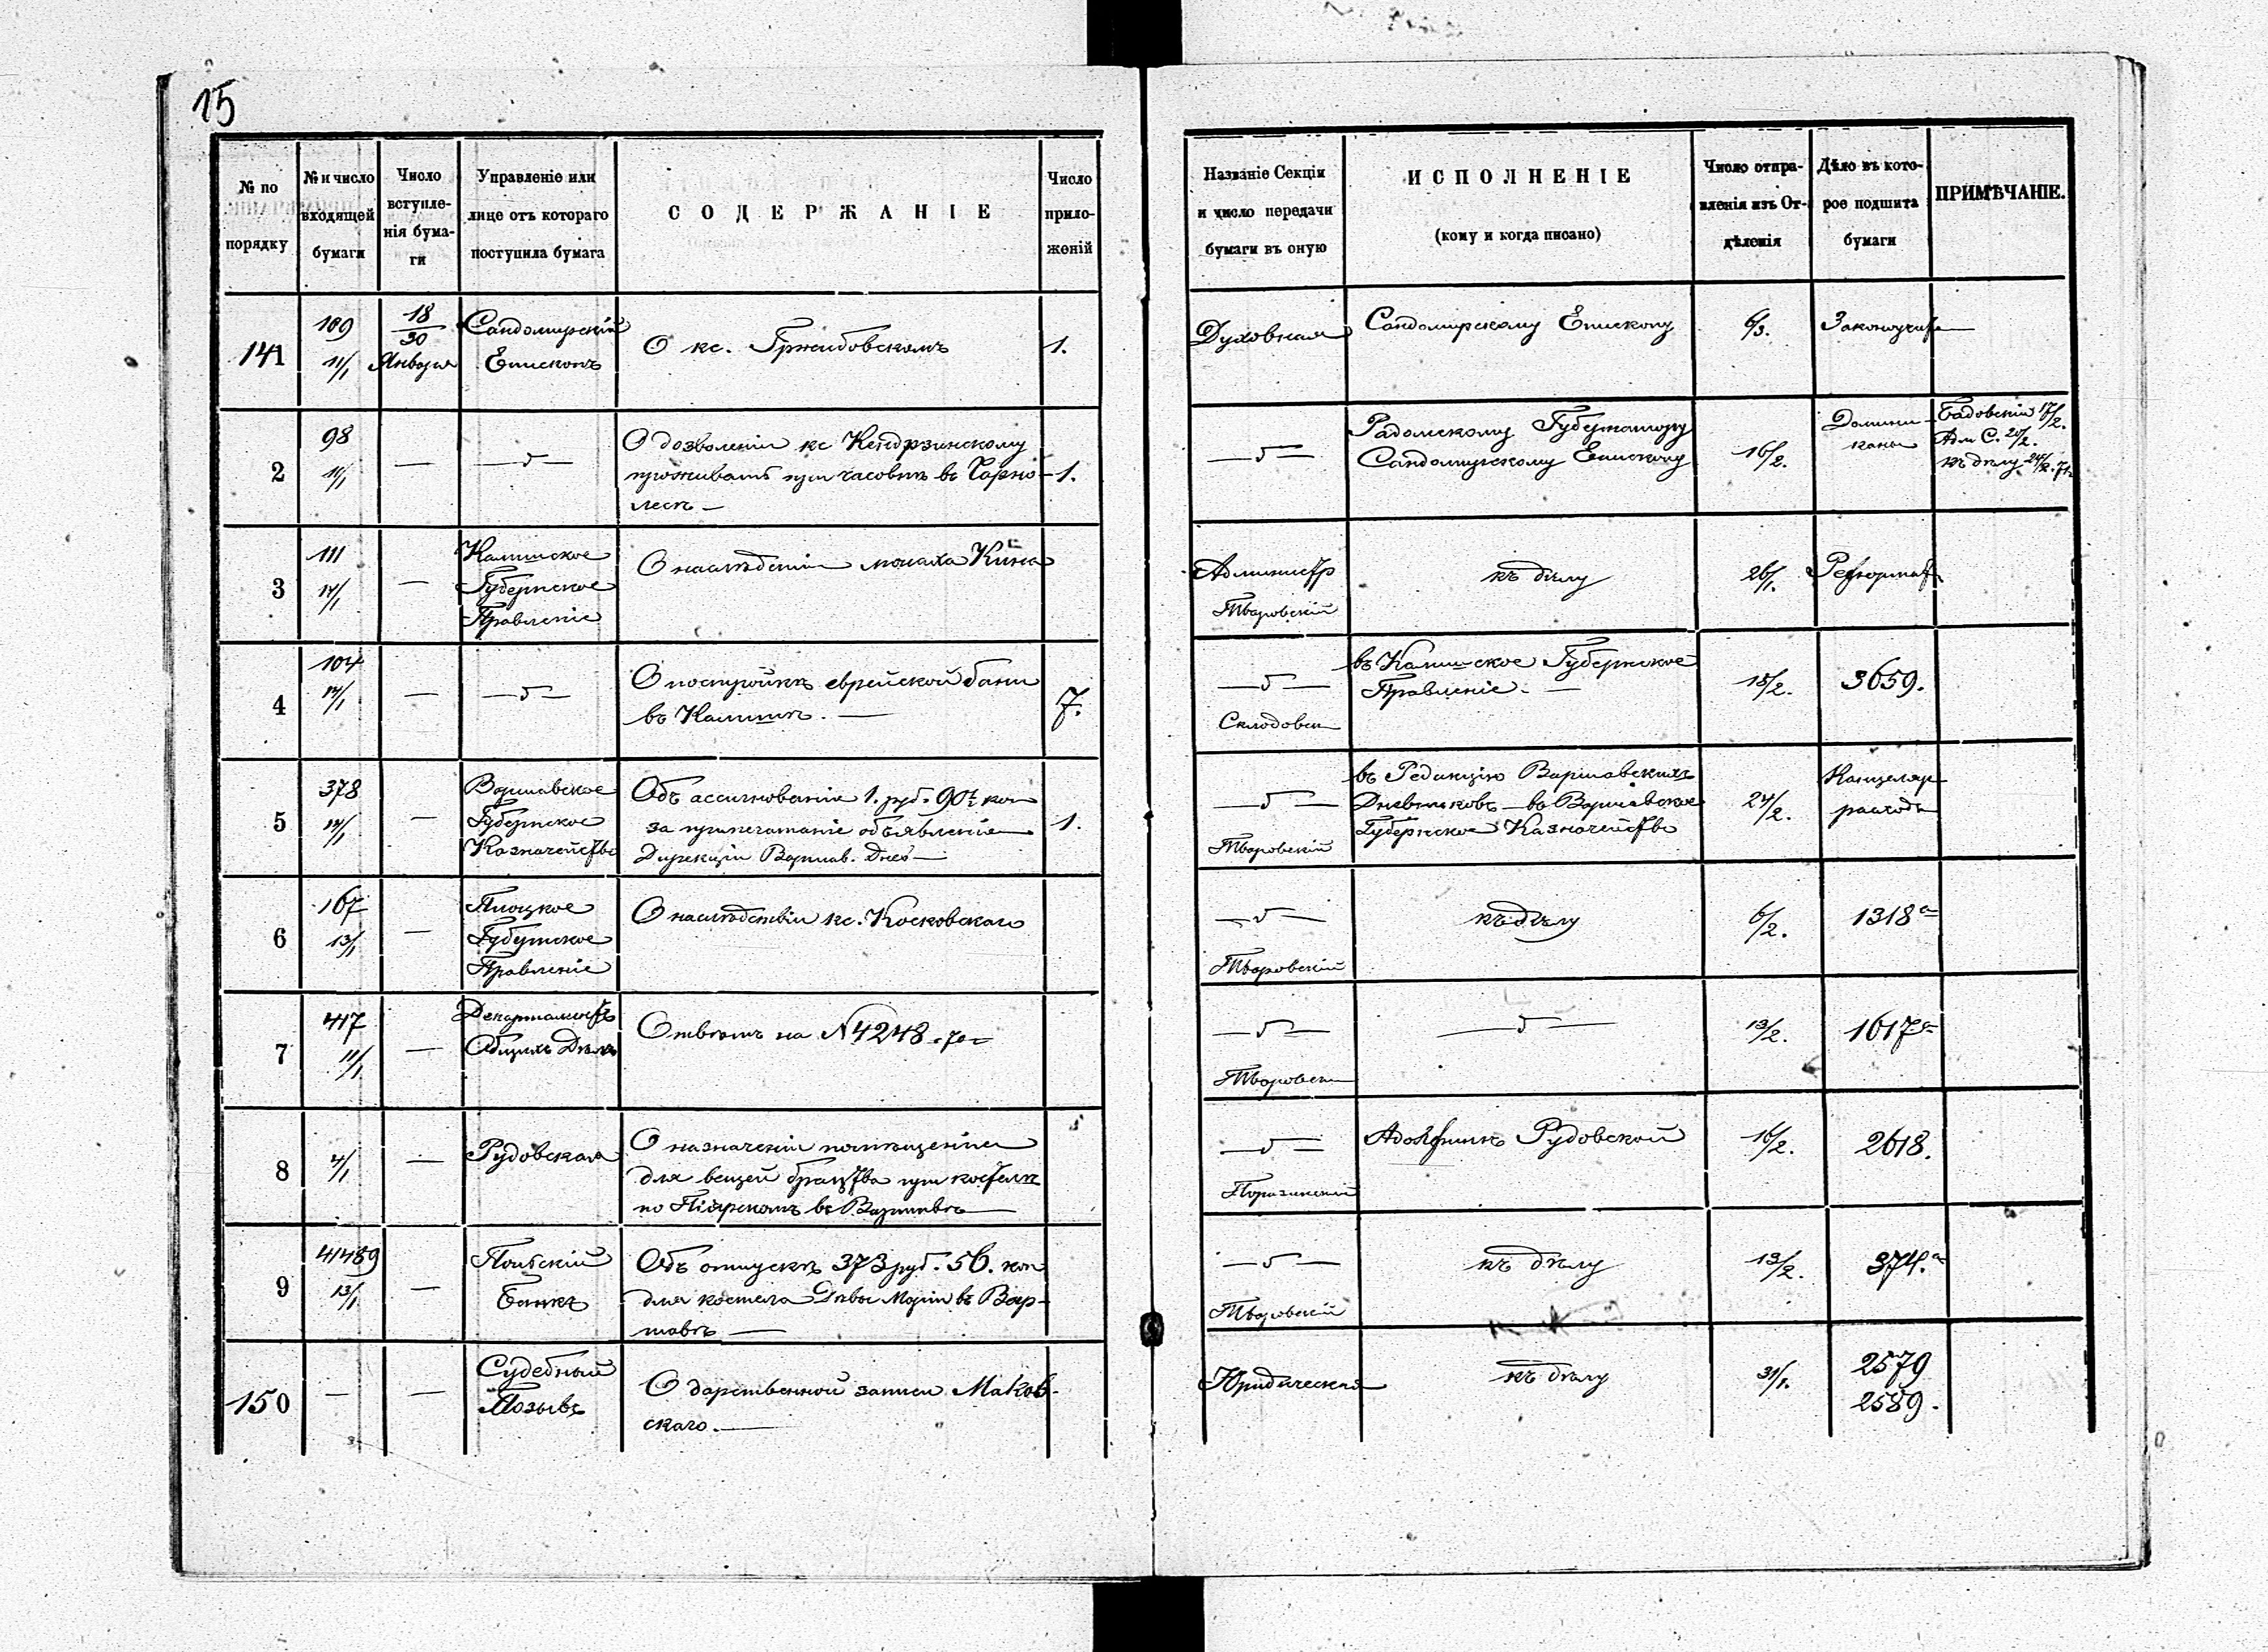 15
№ по порядку
№ и число входящей бумаги
Число вступленія бумаги
Управленіе или лице отъ котораго поступила бумага
СОДЕРЖАНІЕ
Число приложеній
Названіе Секціи и число передачи бумаги въ оную
ИСПОЛНЕНІЕ
(кому и когда писано)
Число отправленія изъ Отдѣленія
Дѣло въ которое подшита бумаги
ПРИМѢЧАНІЕ.
141
109
11/1
18/30
Января
Сандомирскій
Епископъ
О кс. Гржибовскомъ
1.
Духовная
Сандомирскому Епископу
6/3.
Законоучит
2
98
11/1
—
—〃—
О дозволеніи кс Кендрзинскому
проживать при часовнѣ въ Чарно-
лесѣ —
1.
—〃—
Радомскому Губернатору
Сандомирскому Епископу
16/2.
Домини-
каны
Бадовскій 17/2.
Адм С. 20/2.
къ дѣлу 24/2. 71
3
111
14/1
—
Калишское
Губернское
Правленіе
О наслѣдствіи монаха Кина
Администр
Тваровскій
къ дѣлу
26/1.
Реформат
4
104
14/1
—
—〃—
О постройкѣ еврейской бани
въ Калишѣ. —
7.
—〃—
Склодовск
въ Калишское Губернское
Правленіе. —
18/2.
3659.
5
378
14/1
—
Варшавское
Губернское
Казначейство
Объ ассигнованіе 1. руб. 90½ коп
за припечатаніе объявленія
Дирекціи Варшав. Днев —
1.
—〃—
Тваровскій
въ Редакцію Варшавскихъ
Дневниковъ — въ Варшавское
Губернское Казначейство
24/2.
Канцеляр
расходы
6
167
13/1
—
Плоцкое
Губернское
Правленіе
О наслѣдствіи кс. Косковскаго
—〃—
Тваровскій
къ дѣлу
6/2.
1318 а
7
417
11/1
—
Департаментъ
Общихъ Дѣлъ
Отвѣтъ на N 4248 - 70 г
—〃—
Тваровск
—〃—
13/2.
1617 а
8
4/1
—
Рудовская
О назначеніи помѣщенія
для вещей братства при костелѣ
по Піарскомъ въ Варшавѣ
—〃—
Поразинскій
Адольфинѣ Рудовской
16/2.
2618.
9
41489
13/1
—
Польскій
Банкъ
Объ отпускѣ 373 руб. 56. коп
для костела Дѣвы Маріи въ Вар-
шавѣ —
—〃—
Тваровскій
къ дѣлу
13/2.
374. а
150
—
—
Судебный
Позывъ
О дарственной записи Маков-
скаго. —
Юридическая
къ дѣлу
31/1.
2579
2589.